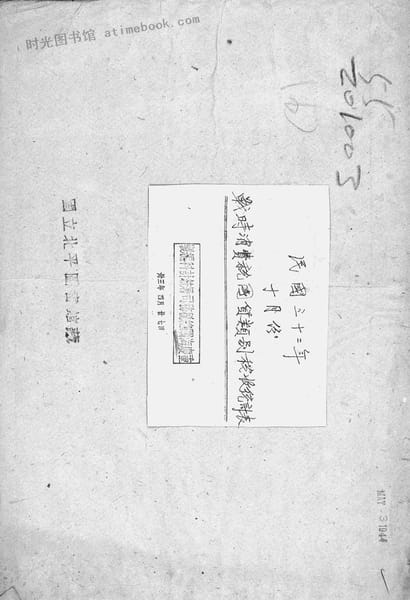 时光图书馆 atimebook.com
201003
民國三十二年
十月份
戰時消費稅國貨類別稅收統計表
卅三年 四月 廿七日
國立北平圖書館藏
MAY 3 1944